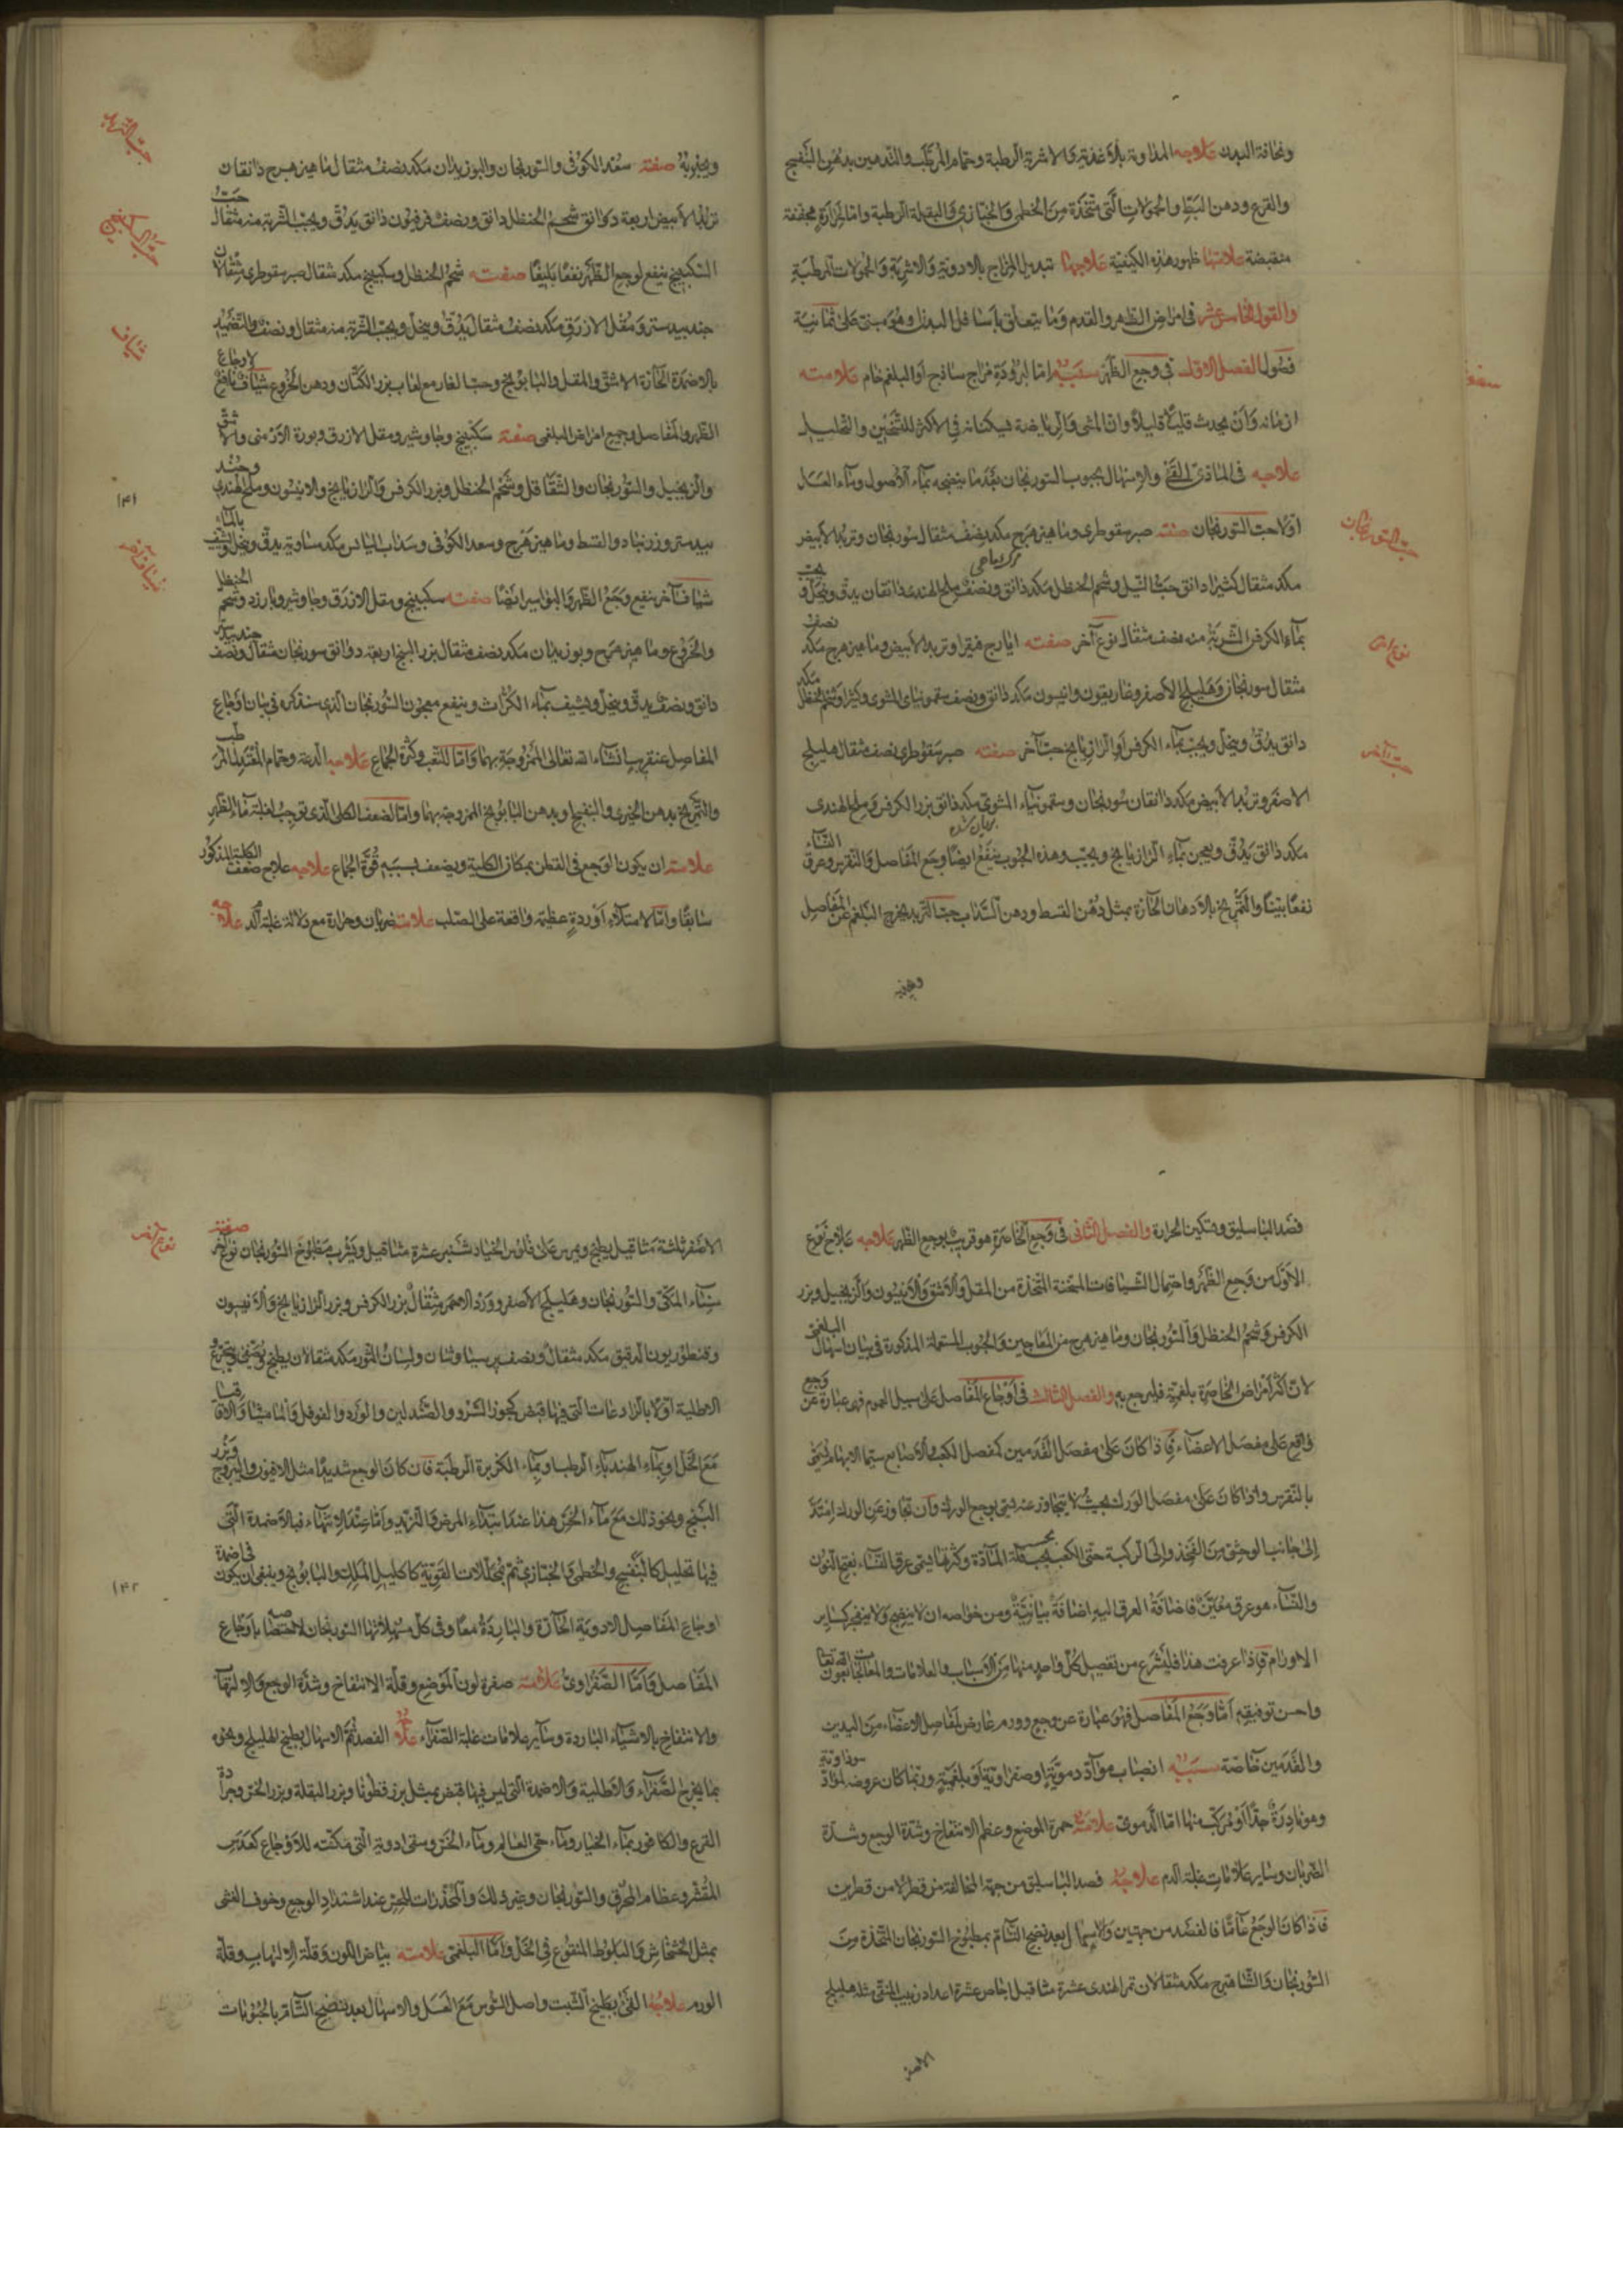 ونحافة البدن علاجه المداومة بالاغذية والاشربة الرطبة وحمام المرطب والتدهين بدهن البنفسج
والقرع ودهن البط والحمولات التي متخذة من الخطمي والخبازي والبقلة الرطبة واما لحرارة مجففة
منقبضة علامتها ظهور هذه الكيفية علاجها تبديل المزاج بالادوية والاشربة والحمولات الرطبة
والقول الخامس عشر في امراض الظهر والقدم وما يتعلق باسافل البدن وهو مبني على ثمانية
فصول الفصل الاول في وجع الظهر سببه اما لبرودة مزاج ساذج او البلغم خام علامته
ازمانه وان يحدث قليلا قليلا وان المشي والرياضة يسكنانه في الاكثر للتسخين والتحليل
علاجه في الماذي القئ والاسهال بحبوب السورنجان بعد ما ينضجه بماء الاصول وماء العسل
اولا حب السورنجان صفته صبر سقوطري وماهيزهرج مكد نصف مثقال سورنجان وتربد الابيض
مكد مثقال كثيرا دانق حب النيل وشحم الحنظل مكد دانق ونصف ملح الهندي دانقان يدق وينخل ويحبب
بماء الكرفس الشربة منه نصف مثقال نوع آخر صفته ايارج فيقرا وتربد الابيض وماهيزهرج مكد نصف
مثقال سورنجان وهليلج الاصفر وغاريقون وانيسون مكد دانق ونصف سقمونياى المشوى وكثيرا وشحم الحنظل مكد
دانق يدق وينخل ويحبب بماء الكرفس او الرازيانج حب آخر صفته صبر سقوطري نصف مثقال هليلج
الاصفر وتربد الابيض مكد دانقان سورنجان وسقمونياء المشوي مكد دانق بزر الكرفس وملح الهندى
مكد دانق يدق ويعجن بماء الرازيانج ويحبب وهذه الحبوب ينفع ايضا وجع المفاصل والنقرس وعرق النساء
نفعا بينا والتمريخ بالادهان الحارة بمثل دهن القسط ودهن السذاب حب التربد يخرج البلغم عن المفاصل
حب السورنجان
نوع آخر
حب آخر
صفته سعد الكوفى والسورنجان والبوزيدان مكد نصف مثقال ماهيزهرج دانقان
تربد الابيض اربعة دوانق شحم الحنظل دانق ونصف فرفيون دانق يدق ويحبب الشربة منه مثقال حب
السكبينج ينفع لوجع الظهر نفعا بليغا صفته شحم الحنظل وسكبينج مكد مثقال صبر سقوطري مثقالان
جندبيدستر ومقل الازرق مكد نصف مثقال يدق وينخل ويحبب الشربة منه مثقال ونصف والتضميد
بالاضمدة الحارة الاشق والمقل والبابونج وحب الغار مع لعاب بزر الكتان ودهن الخروع شياف نافع لاوجاع
الظهر والمفاصل وجميع امراض البلغمى صفته سكبينج وجاوشير ومقل الازرق وبورة الارمنى والاشق
والزنجبيل والسورنجان والشقاقل وشحم الحنظل وبزر الكرفس والرازيانج والانيسون وملح الهندي وجند
بيدستر وزرنباد والقسط وماهيزهرج وسعد الكوفى وسذاب اليابس مكد مساوية يدق وينخل ويشيف بالماء
شياف آخر ينفع وجع الظهر والبواسير ايضا صفته سكبينج ومقل الازرق وجاوشير وبارزد وشحم الحنظل
والخروع وماهيزهرج وبوزيدان مكد نصف مثقال بزر البنج اربعة دوانق سورنجان مثقال ونصف جندبيدستر
دانق ونصف يدق وينخل ويشيف بماء الكراث وينفع معجون السورنجان الذي سنذكره في بيان اوجاع
المفاصل عنقريب انشاء الله تعالى الممزوجة بهما واما للتعب وكثرة الجماع علاجه الدعة وحمام المعتدل المرطب
والتمريخ بدهن الخيري والبنفسج او بدهن البابونج الممزوجة بهما واما لضعف الكلى الذي توجب
علامته ان يكون الوجع في القطن بمكان الكلية ويضعف بسببه قوة الجماع علاجه علاج ضعف الكلية المذكور
سابقا واما لامتلاء اوردة عظيمة واقعة على الصلب علامته ضربان وحرارة مع دلالة غلبة الدم علاجه
شياف
١٤١
فصد الباسليق وتسكين الحرارة والفصل الثاني في وجع الخاصرة هو قريب بوجع الظهر علاجه علاج نوع
الاول من وجع الظهر واحتمال الشيافات المسخنة المتخذة من المقل والاشق والانيسون والزنجبيل وبزر
الكرفس وشحم الحنظل والسورنجان وماهيزهرج من المعاجين والحبوب المستعملة المذكورة في بيان اسهال البلغمي
لان اكثر امراض الخاصرة بلغمية فليرجع به والفصل الثالث في اوجاع المفاصل على سبيل العموم فهي عبارة عن وجع
واقع على مفصل الاعضاء فاذا كان على مفصل القدمين كمفصل الكعب والاصابع سيما الابهام فيسمى
بالنقرس واذا كان على مفصل الورك بحيث لا يتجاوز عنه يسمى بوجع الورك وان تجاوز عن الورك امتد
الى جانب الوحشي من الفخذ والى الركبة حتى الكعب بحسب قلة المادة وكثرتها يسمى عرق النساء بفتح النون
والنساء هو عرق معين فاضافة العرق اليه اضافة بيانية ومن خواصه ان لا ينضج ولا ينفجر كساير
الاورام فاذا عرفت هذا فليشرع من تفصيل كل واحد منها من الاسباب والعلامات والمعالجات بعون الله تعالى
واحسن توفيقه اما وجع المفاصل فهو عبارة عن وجع وورم عارض لمفاصل الاعضاء من اليدين
والقدمين خاصة سببه انصباب مواد دموية او صفراوية او بلغمية وربما كان عروضه لمواد سوداوية
وهو نادرة جدا او مركب منها اما الدموى علامته حمرة الموضع وعظم الانتفاخ وشدة الوجع وشدة
الضربان وساير علامات غلبة الدم علاجه فصد الباسليق من جهة المخالفة من قطر لا من قطرين
فاذا كان الوجع عاما فالفصد من جهتين والاسهال بعد نضج التام بمطبوخ السورنجان المتخذة من
السورنجان والشاهترج مكد مثقالان تمر الهندى عشرة مثاقيل اجاص عشرة اعداد زبيب المنقى مثله هليلج
الاصفر
الاصفر ثلثة مثاقيل يطبخ ويمرس على فلوس الخيار شنبر عشرة مثاقيل ويشرب مطبوخ السورنجان نوع آخر صفته
سناء المكي والسورنجان وهليلج الاصفر وورد الاحمر مثقال بزر الكرفس وبزر الرازيانج والانيسون
وقنطوريون الدقيق مكد مثقال ونصف برسياوشان ولسان الثور مكد مثقالان يطبخ ويصفى ويتجرع
الاطلية اولا بالرادعات التي فيها قبض كجوز السرو والصندلين والورد والفوفل والماميثا والاقاقيا
مع الخل او بماء الهندباء الرطب او بماء الكزبرة الرطبة فان كان الوجع شديدا مثل الافيون واليبروج وبزر
البنج ونحو ذلك مع ماء الخس هذا عند ابتداء المرض والتزيد واما عند الانتهاء فبالاضمدة التي
فيها تحليل كالبنفسج والخطمي والخبازي ثم بمحللات القوية كاكليل الملك والبابونج وينبغي ان يكون في اضمدة
اوجاع المفاصل الادوية الحارة والباردة معا وفي كل مسهلاتها السورنجان لاختصاصها باوجاع
المفاصل واما الصفراوي علامته صفرة لون الموضع وقلة الانتفاخ وشدة الوجع والالتهاب
والانتفاع بالاشياء الباردة وساير علامات غلبة الصفراء علاجه الفصد ثم الاسهال بطبيخ الهليلج ونحوه
بما يخرج الصفراء والاطلية والاضمدة التي ليس فيها قبض بمثل بزر قطونا وبزر البقلة وبزر الخس وجرادة
القرع والكافور بماء الخيار وماء حي العالم وماء الخس وسقى ادوية التي مسكنة للاوجاع كعدس
المقشر وعظام المحرق والسورنجان وغير ذلك والمخدرات للحس عند اشتداد الوجع وخوف الغشى
بمثل الخشخاش والبلوط المنقوع في الخل واما البلغمى علامته بياض اللون وقلة الالتهاب وقلة
الورم علاجه القئ بطبيخ الشبت واصل السوس مع العسل والاسهال بعد نضج التام بالحبوبات
نوع آخر
١٤٢